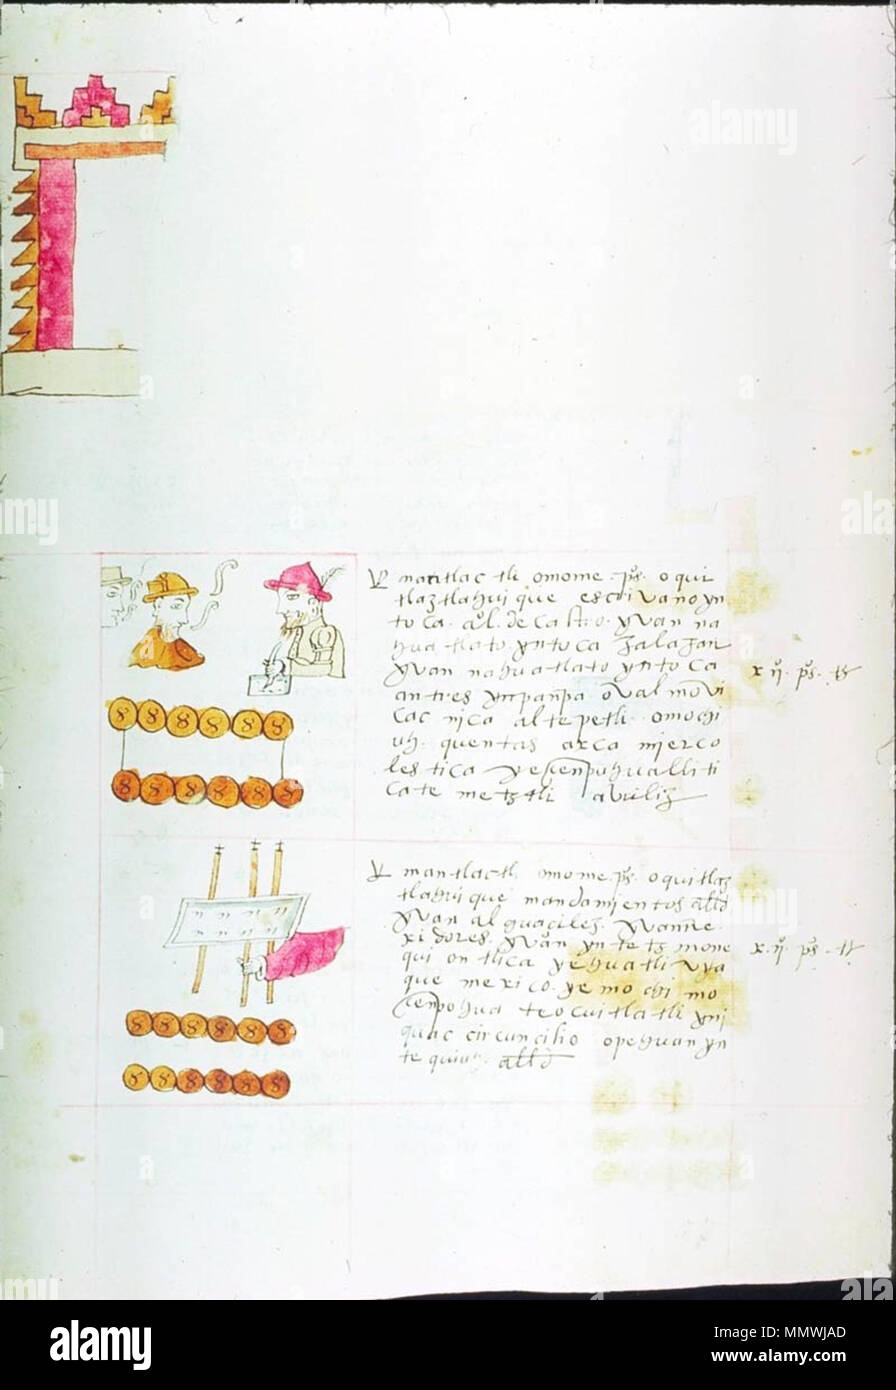 matlactli omome ps o qui
tlaztlahui que escrivano yn
toca aol. de castro. yvan na
huatlato. yntoca salazar
yvan nahuatlato yntoca
andres ynpanpa oval movi
cac nica altepetli. omochi
uh. quentas arca mierco
lestica ye cenpohualli ti
cate metztli
x ij. ps. ts
mantlactli omome. ps. oquitlaz
tlahui que mandamientos alldˉ
yvan alguaciles. yvan re
xidores. yvan yn te
qui on tlica yehuatl
que mexico. ye mochi mo
cenpohua teocuitlatli yni
quac circuncisio opehuan yn
te quiuh. alldˉ
x. ij. ps. ts
alamy
Image ID: MMWJAD
www.alamy.com